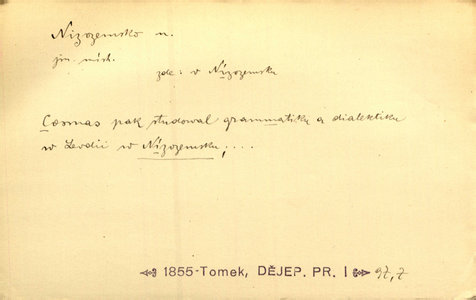 Nizozemsko n.
jm. místn.
zde: v Nizozemsku
Cosmas pak studowal grammatiku a dialektiku
w Leodii w Nízozemsku; ....
1855-Tomek, DĚJEP. PR. I 97,7